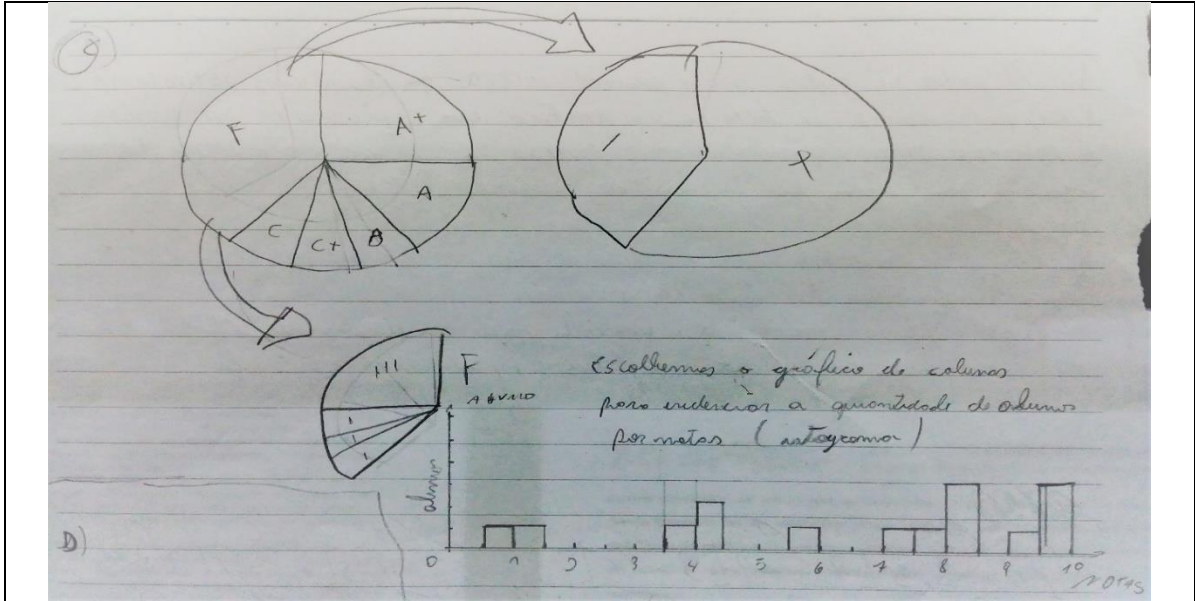 C)
F
A+
A
B
C+
C
/
X
III
F
I
I
I
Escolhemos o gráfico de colunas
para evidenciar a quantidade de alunos
por notas (istograma)
D)
alunos
0 1 2 3 4 5 6 7 8 9 10
NOTAS